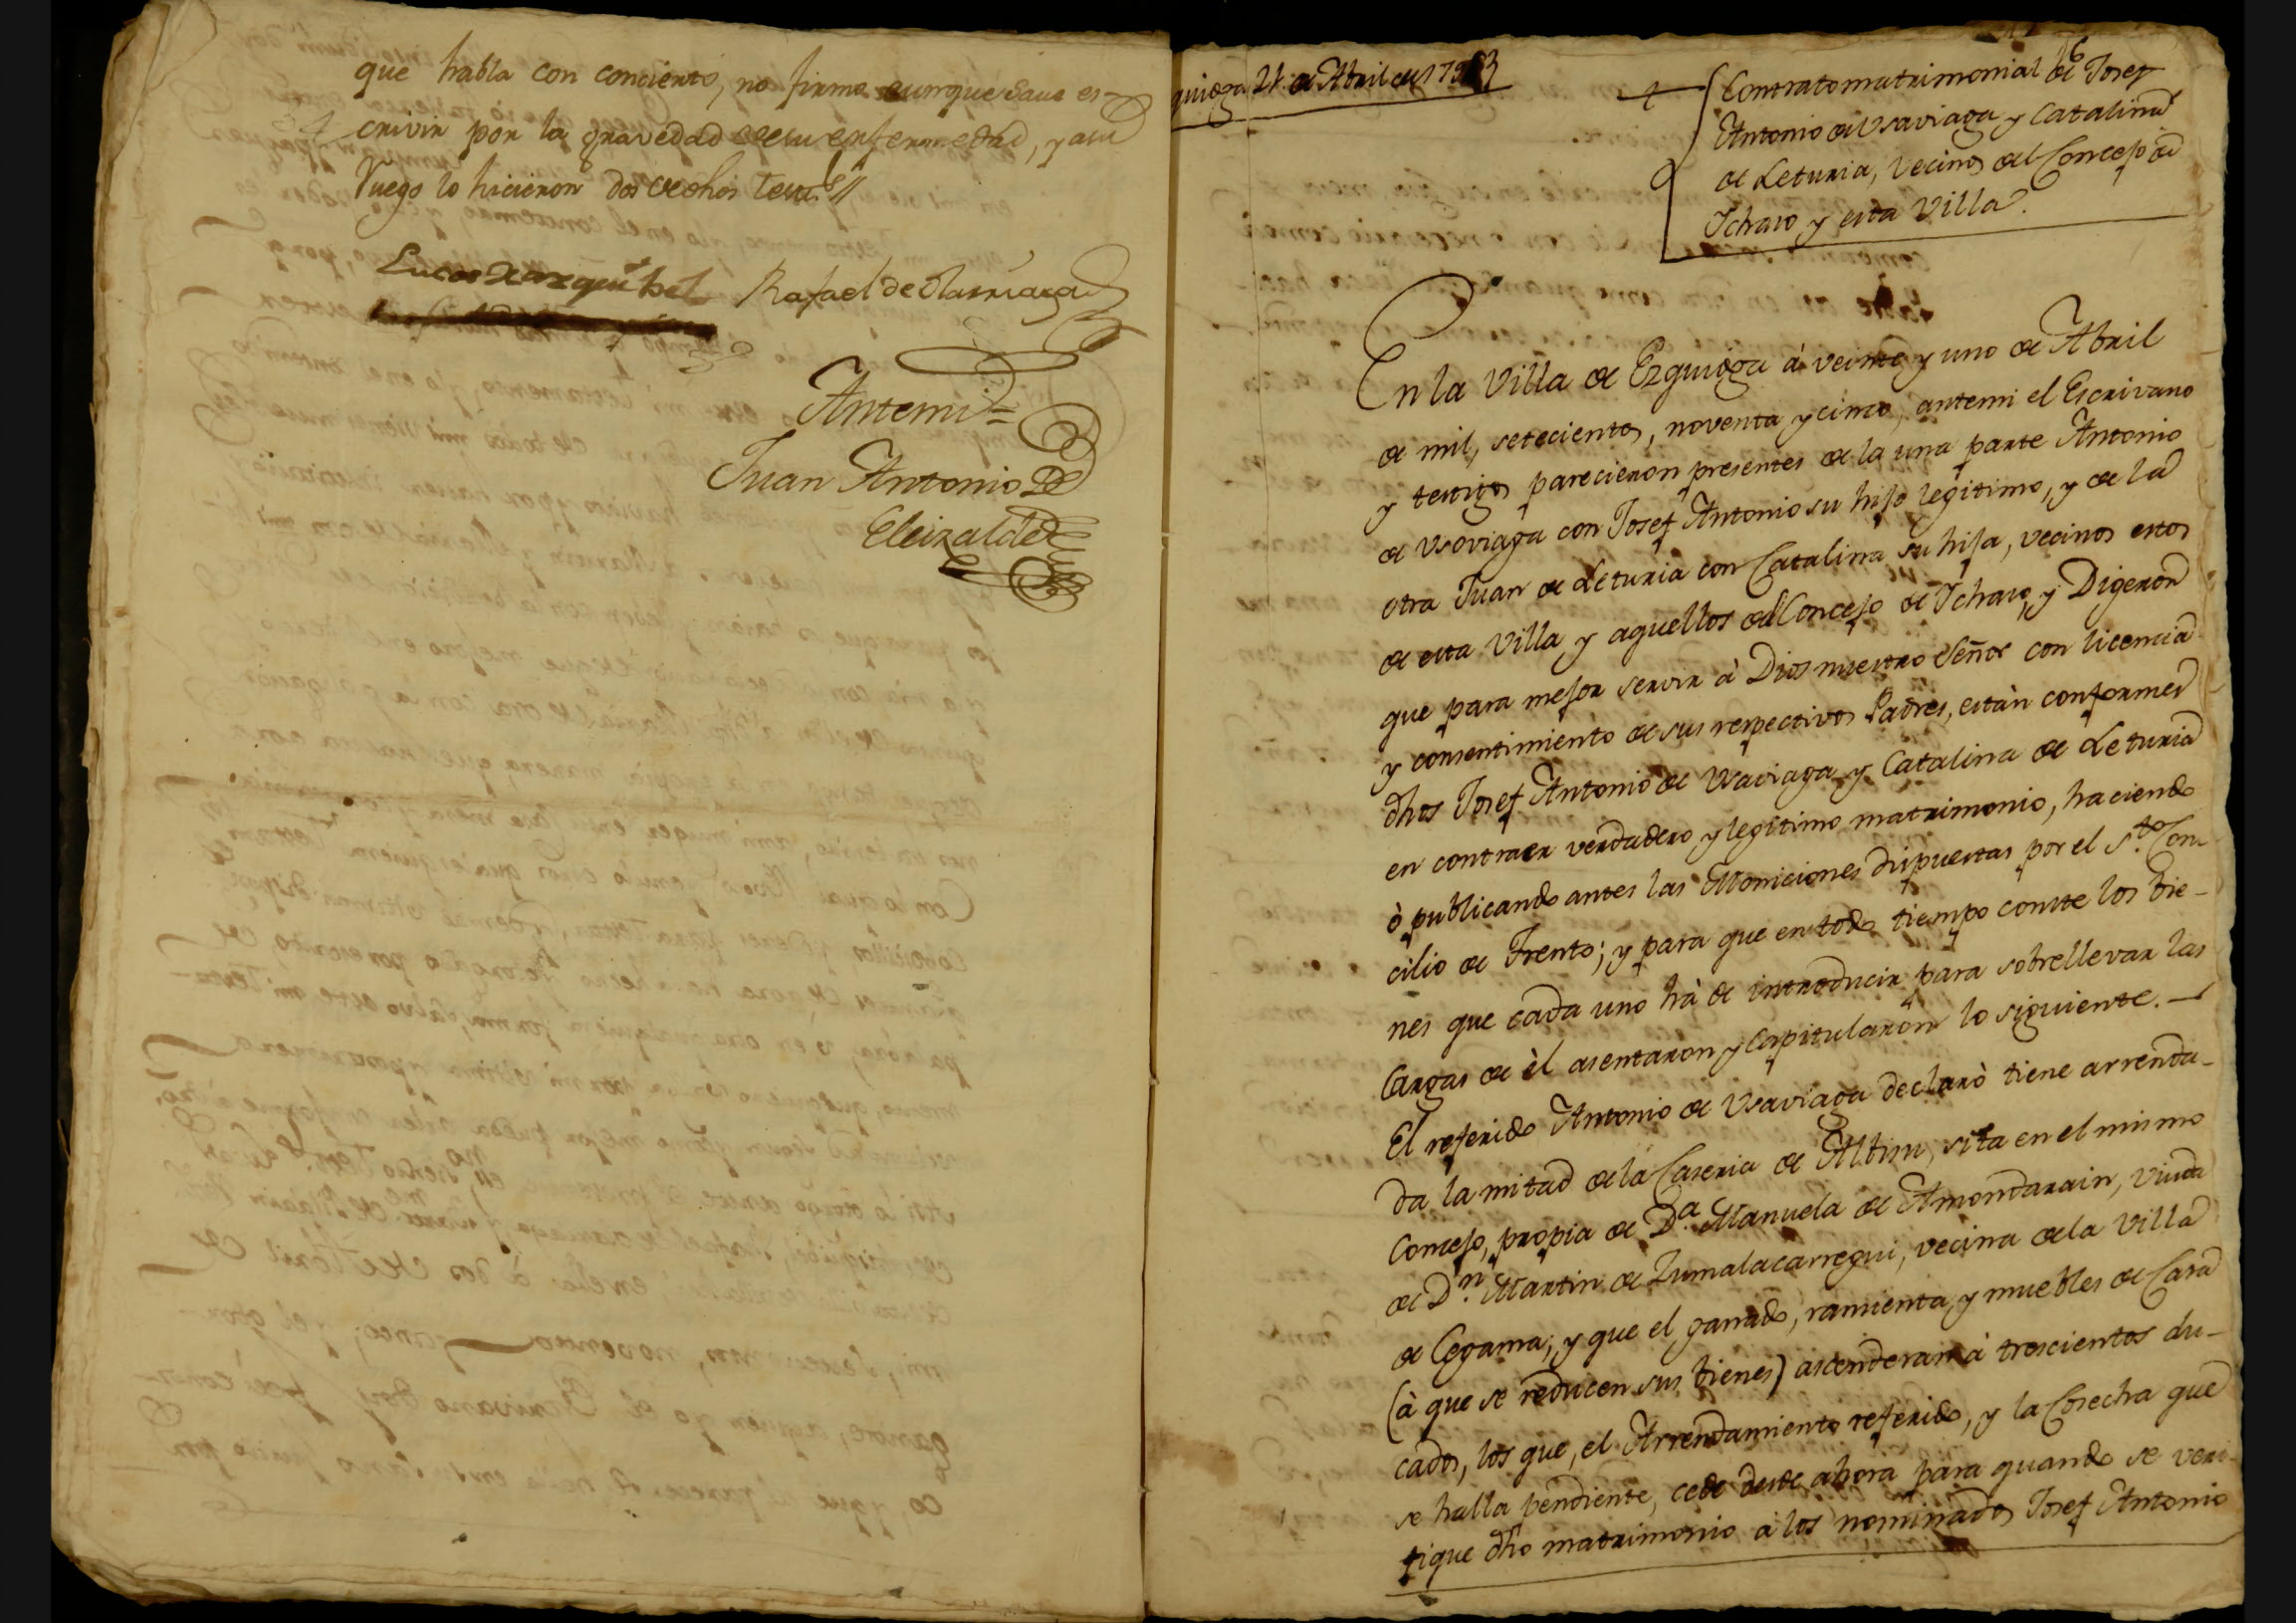 que habla con concierto, no firmo aunque save es-
crivir por la gravedad de su enfermedad, y a su
Ruego lo hicieron dos de dhos testˢ //
Lucas de azquibel Rafael de Olasriaga
Antemi =
Juan Antonio De
Eleizalde
quioga 21 de Abril de 1795
16
Contrato matrimonial de Josef
Antonio de Usaviaga y Catalina
de Leturia, vecinos del Concejo de
Ichaso y esta Villa.
En la Villa de Ezquioga à veinte y uno de Abril
de mil, setecientos, noventa y cinco, antemi el Escrivano
y testigos parecieron presentes de la una parte Antonio
de Usoviaga con Josef Antonio su hijo legitimo, y de la
otra Juan de Leturia con Catalina su hija, vecinos estos
de esta Villa y aquellos del Concejo de Ichaso, y Digeron
que para mejor servir à Dios nuestro Señor con licencia
y consentimiento de sus respectivos Padres, estàn conformes
dhos Josef Antonio de Usaviaga y Catalina de Leturia
en contraer verdadero y legitimo matrimonio, haciendo
ò publicando antes las Moniciones dispuestas por el S.ᵗᵒ Con-
cilio de Trento; y para que en todo tiempo conste los bie-
nes que cada uno hà de introducir para sobrellevar las
Cargas de èl asentaron y Capitularon lo siguiente. —
El referido Antonio de Usaviaga declarò tiene arrenda-
da la mitad de la Caseria de Altim, sita en el mismo
Concejo, propia de D.ᵃ Manuela de Amondarain, Viuda
de D.ⁿ Martin de Zumalacarregui, vecina de la Villa
de Cegama; y que el ganado, ramienta, y muebles de Casa
(à que se reducen sus bienes) ascenderan à trescientos du-
cados, los que, el Arrendamiento referido, y la Cosecha que
se halla pendiente, cede desde ahora para quando se veri-
fique dho matrimonio à los nominados Josef Antonio